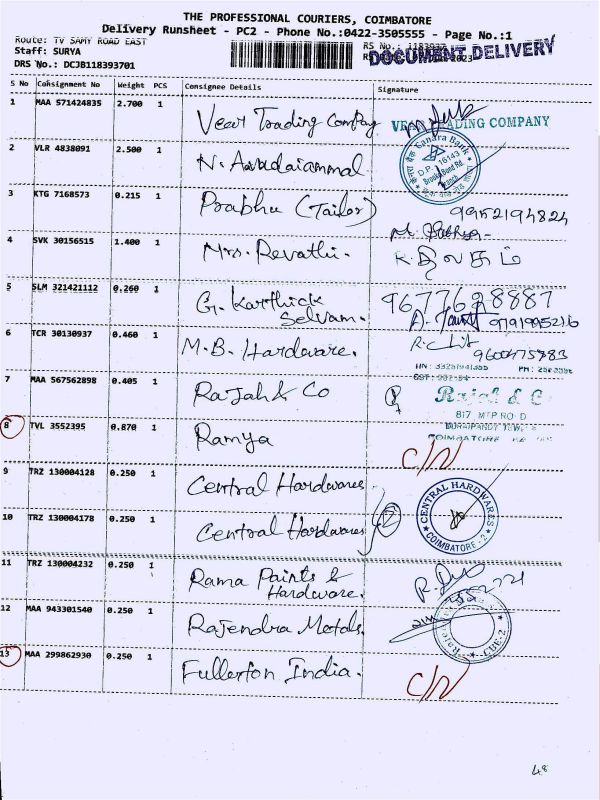 THE PROFESSIONAL COURIERS, COIMBATORE
Delivery Runsheet - PC2 - Phone No.:0422-3505555 - Page No.:1
Route: TV SAMY ROAD EAST
Staff: SURYA
RS No.:
DOCUMENT DELIVERY
DRS No.: DCJB118393701
S No Consignment No Weight PCS Consignee Details Signature
1 MAA 571424835 2.700 1 Veer Trading Company
TRADING COMPANY
2 VLR 4838091 2.500 1 N. Aavudaiammal
Canara Bank
D.P. 16143
Brooke Bond Rd.
3 KTG 7168573 0.215 1 Prabhu (Tailor) 9952194824
4 SVK 30156515 1.400 1 Mrs. Revathi.
5 SLM 321421112 0.260 1 G. Karthick Selvam. 9677628887
9791995216
6 TCR 30130937 0.460 1 M.B. Hardware.
9600475983
7 MAA 567562898 0.405 1 Rajah & Co
Rajah & Co
817 MTP ROAD
COIMBATORE
8 TVL 3552395 0.870 1 Ramya C/N
9 TRZ 130004128 0.250 1 Central Hardwares
CENTRAL HARDWARES
COIMBATORE - 2
10 TRZ 130004178 0.250 1 Central Hardwares
11 TRZ 130004232 0.250 1 Rama Paints & Hardware.
12 MAA 943301540 0.250 1 Rajendra Metals.
CBE-2
13 MAA 299862930 0.250 1 Fullerton India. C/N
48